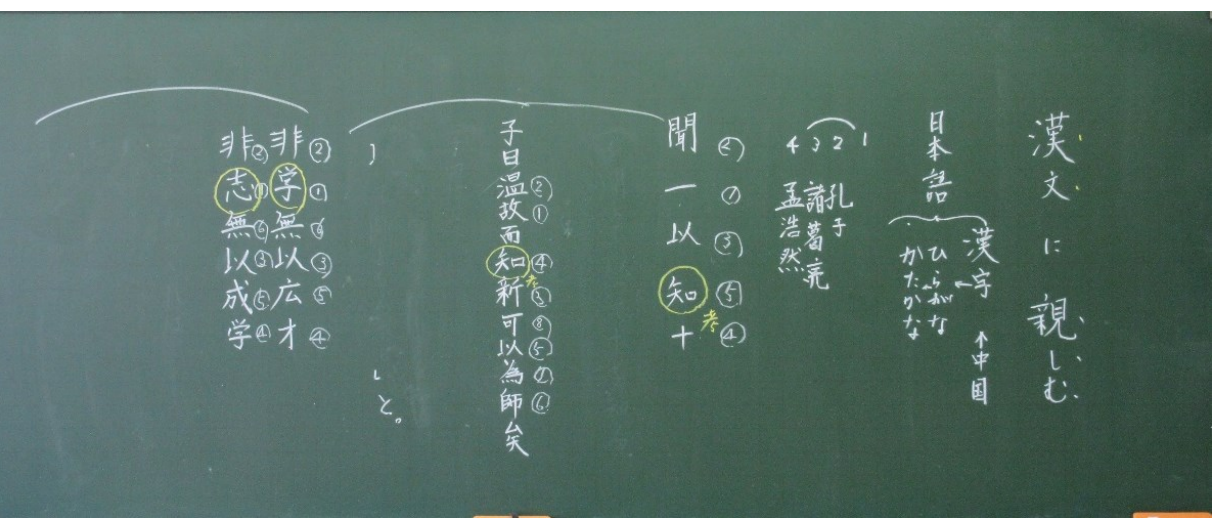 漢文に親しむ
漢字 ←中国
日本語
ひらがな
かたかな
1
2 孔子
3 諸葛亮
4 孟浩然
聞②一①以③知⑤十④
考
子曰温②故①而知④新③可⑧以⑤為⑦師⑥矣
考
」と。
非②学①無⑥以③広⑤才④
非②志①無⑥以③成⑤学④